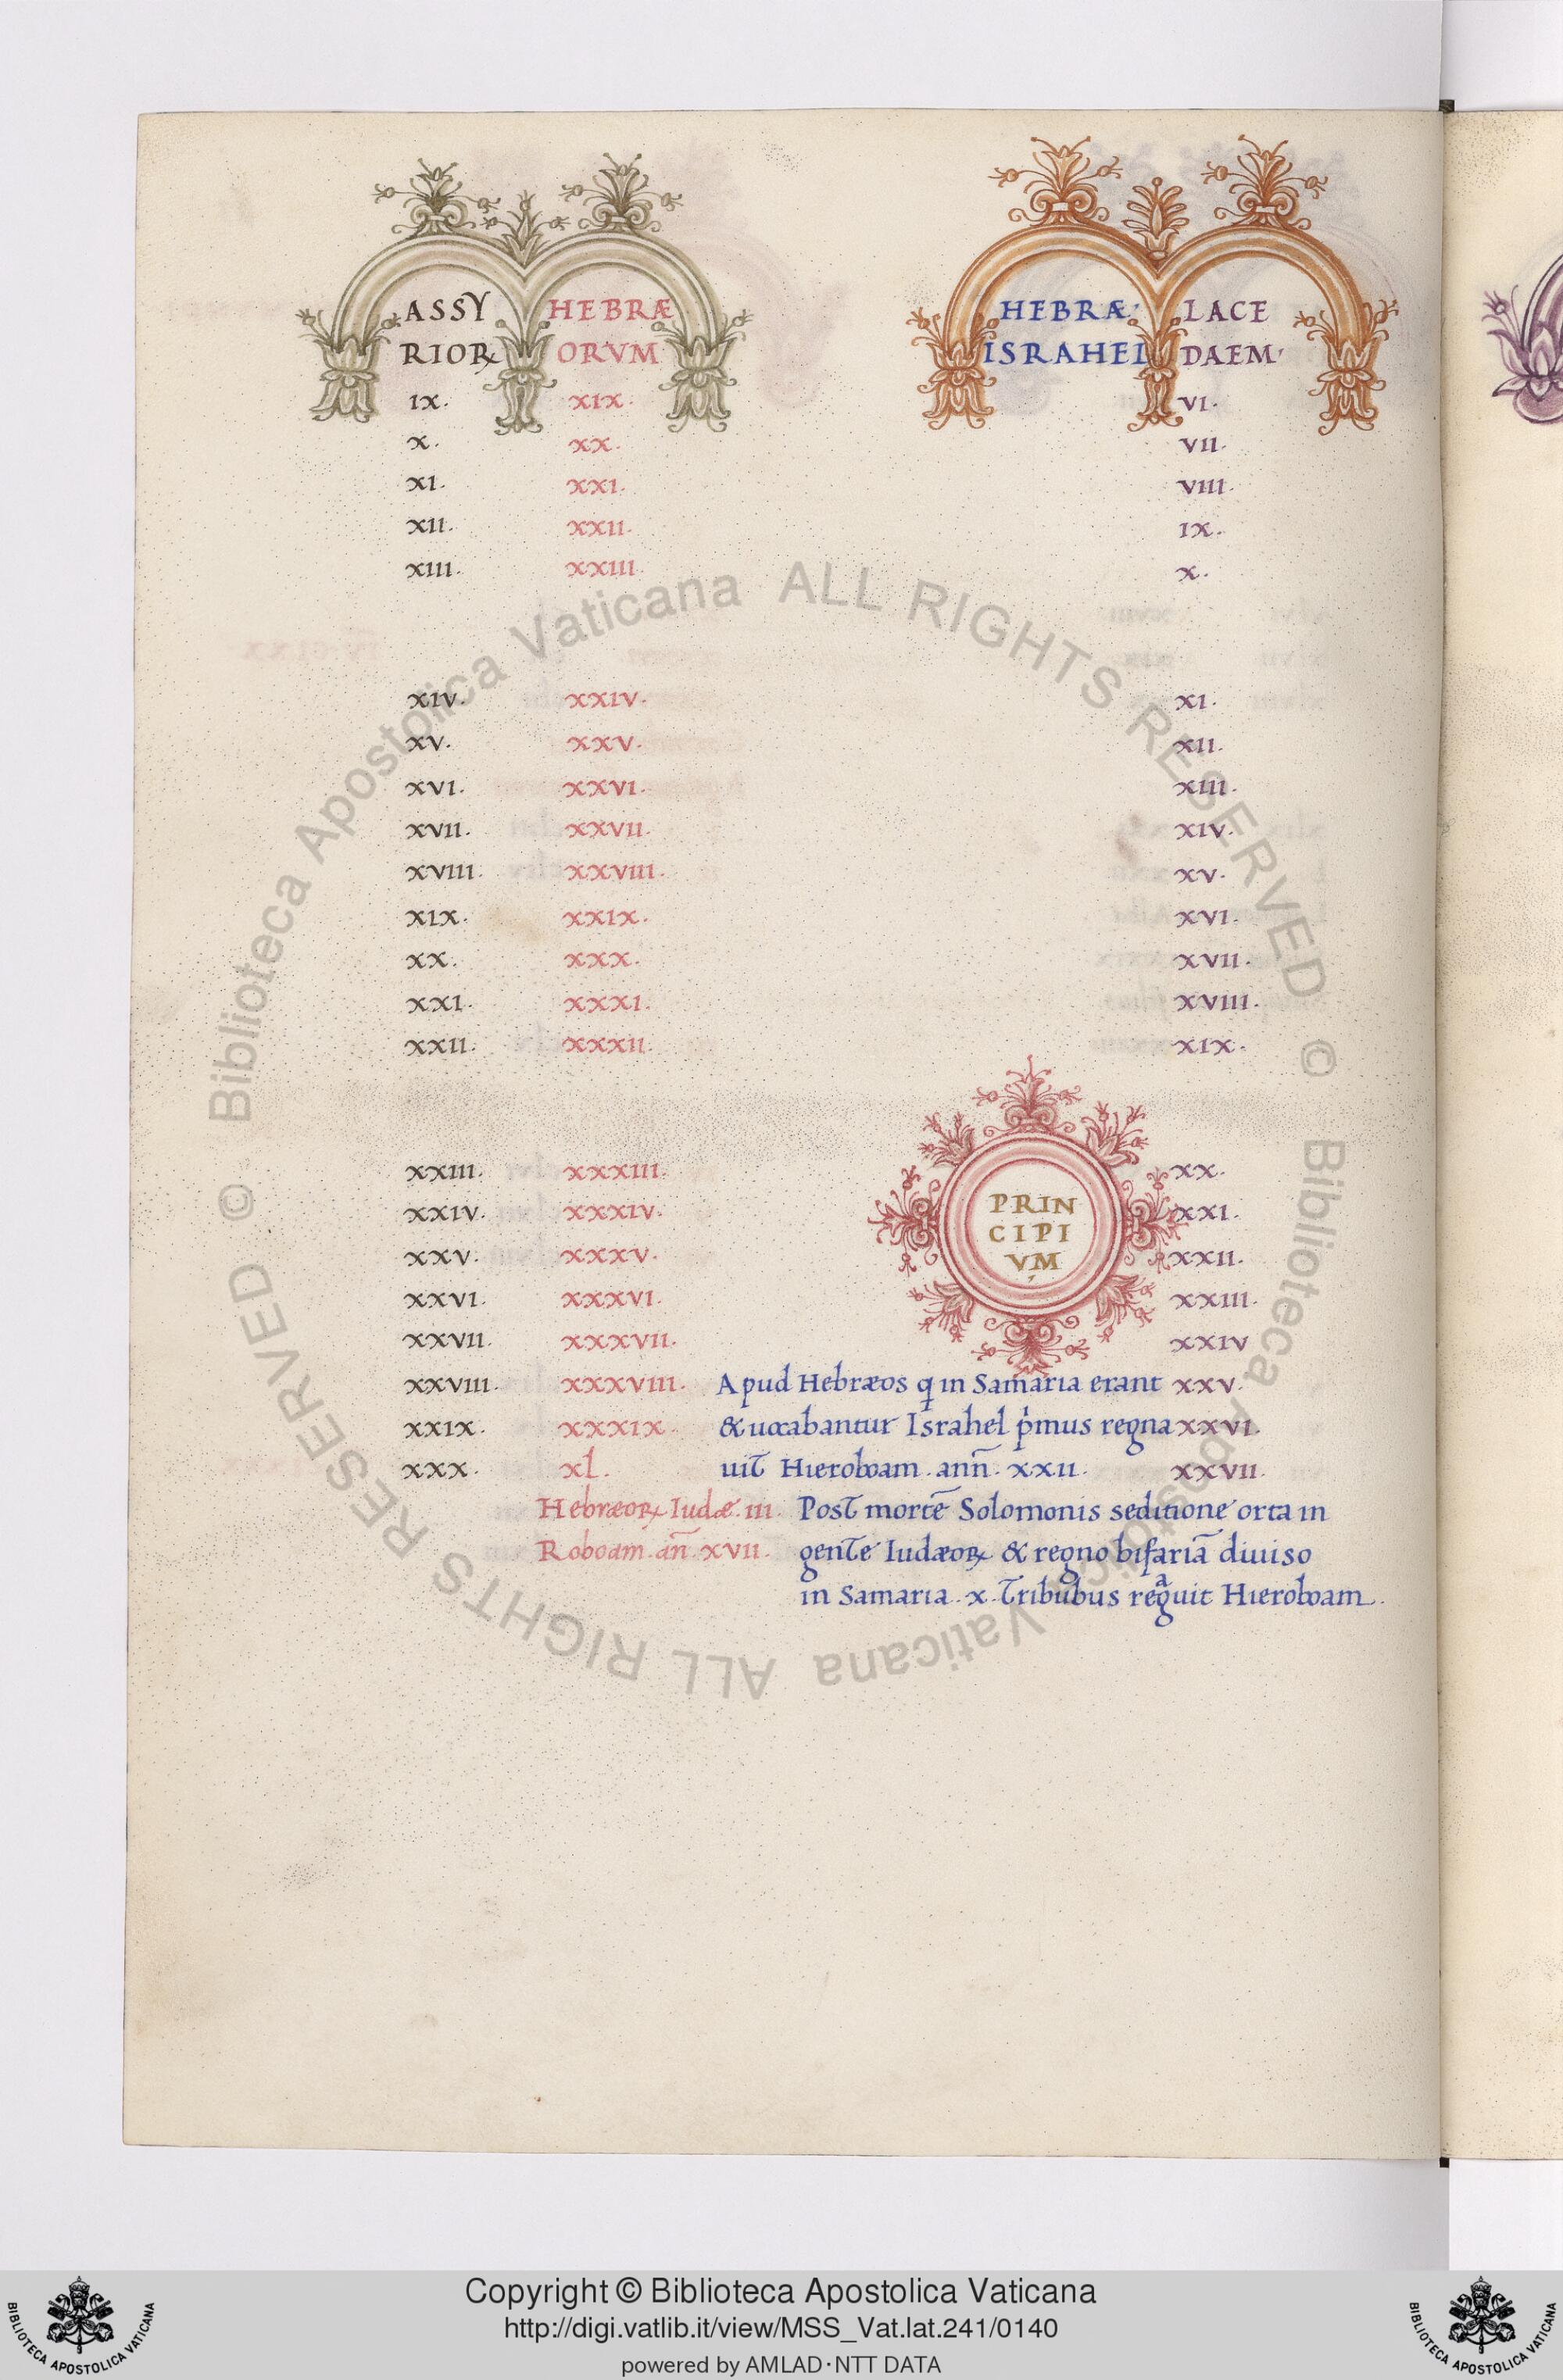 ASSY HEBRÆ HEBRÆ· LACE
RIOꝜ ORVM ISRAHEL DAEM·
IX. XIX. VI.
X. XX. VII.
XI. XXI. VIII.
XII. XXII. IX.
XIII. XXIII. X.
XIV. XXIV. XI.
XV. XXV. XII.
XVI. XXVI. XIII.
XVII. XXVII. XIV.
XVIII. XXVIII. XV.
XIX. XXIX. XVI.
XX. XXX. XVII.
XXI. XXXI. XVIII.
XXII. XXXII. XIX.
PRIN
CIPI
VM
XXIII. XXXIII. XX.
XXIV. XXXIV. XXI.
XXV. XXXV. XXII.
XXVI. XXXVI. XXIII.
XXVII. XXXVII. XXIV
XXVIII. XXXVIII. Apud Hebræos q in Samaria erant XXV.
XXIX. XXXIX. & uocabantur Israhel p̍mus regna XXVI.
XXX. xl. uit Hieroboam. ann̄. XXII. XXVII.
Hebræoꝝ Iudæ. III. Post mortē Solomonis seditione orta in
Roboam. an̄. XVII. gente Iudæoꝝ & regno bifariā diuiso
in Samaria. x. Tribubus regͣuit Hieroboam.
© Biblioteca Apostolica Vaticana ALL RIGHTS RESERVED
© Biblioteca Apostolica Vaticana ALL RIGHTS RESERVED
Copyright © Biblioteca Apostolica Vaticana
http://digi.vatlib.it/view/MSS_Vat.lat.241/0140
powered by AMLAD·NTT DATA
BIBLIOTECA APOSTOLICA VATICANA
BIBLIOTECA APOSTOLICA VATICANA